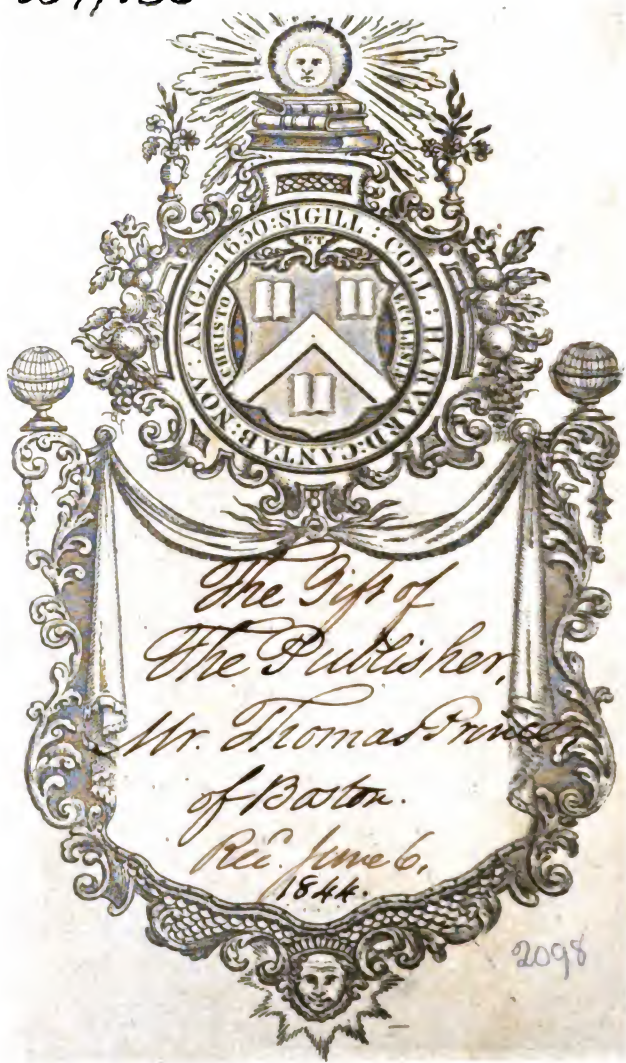 SIGILL : COLL : HARVARD : CANTAB : NOV : ANGL : 1650 :
CHRISTO ET ECCLESIÆ
The Gift of
The Publisher,
Mr. Thomas Prince,
of Boston.
Rec. June 6,
1844.
2098